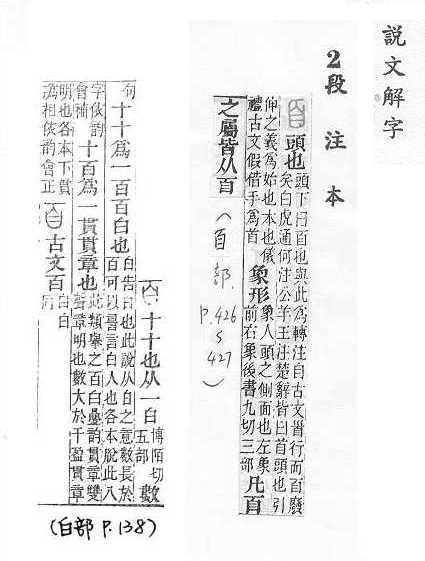 說文解字
2段注本
頭也
頭下曰𦣻也與此爲轉注自古文𩠐行而𦣻廢
矣白虎通何注公羊王注楚辭皆曰首頭也引
伸之義爲始也本也儀
禮古文假借手爲首
象形
象人頭之側面也左象
前右象後書九切三部
凡𦣻
之屬皆从𦣻
(𦣻部. P.426 5 427)
十十也从一白
博陌切
五部
數
句
十十爲一百百白也
白告白也此說从白之意數長於
百可以言白人也各本脫此八
字依韵
會補
十百爲一貫貫章也
此類舉之百白曡韵貫章雙
聲章明也數大於千盈貫章
明也各本下貫
爲相依韵會正
古文百
(白部 P.138)